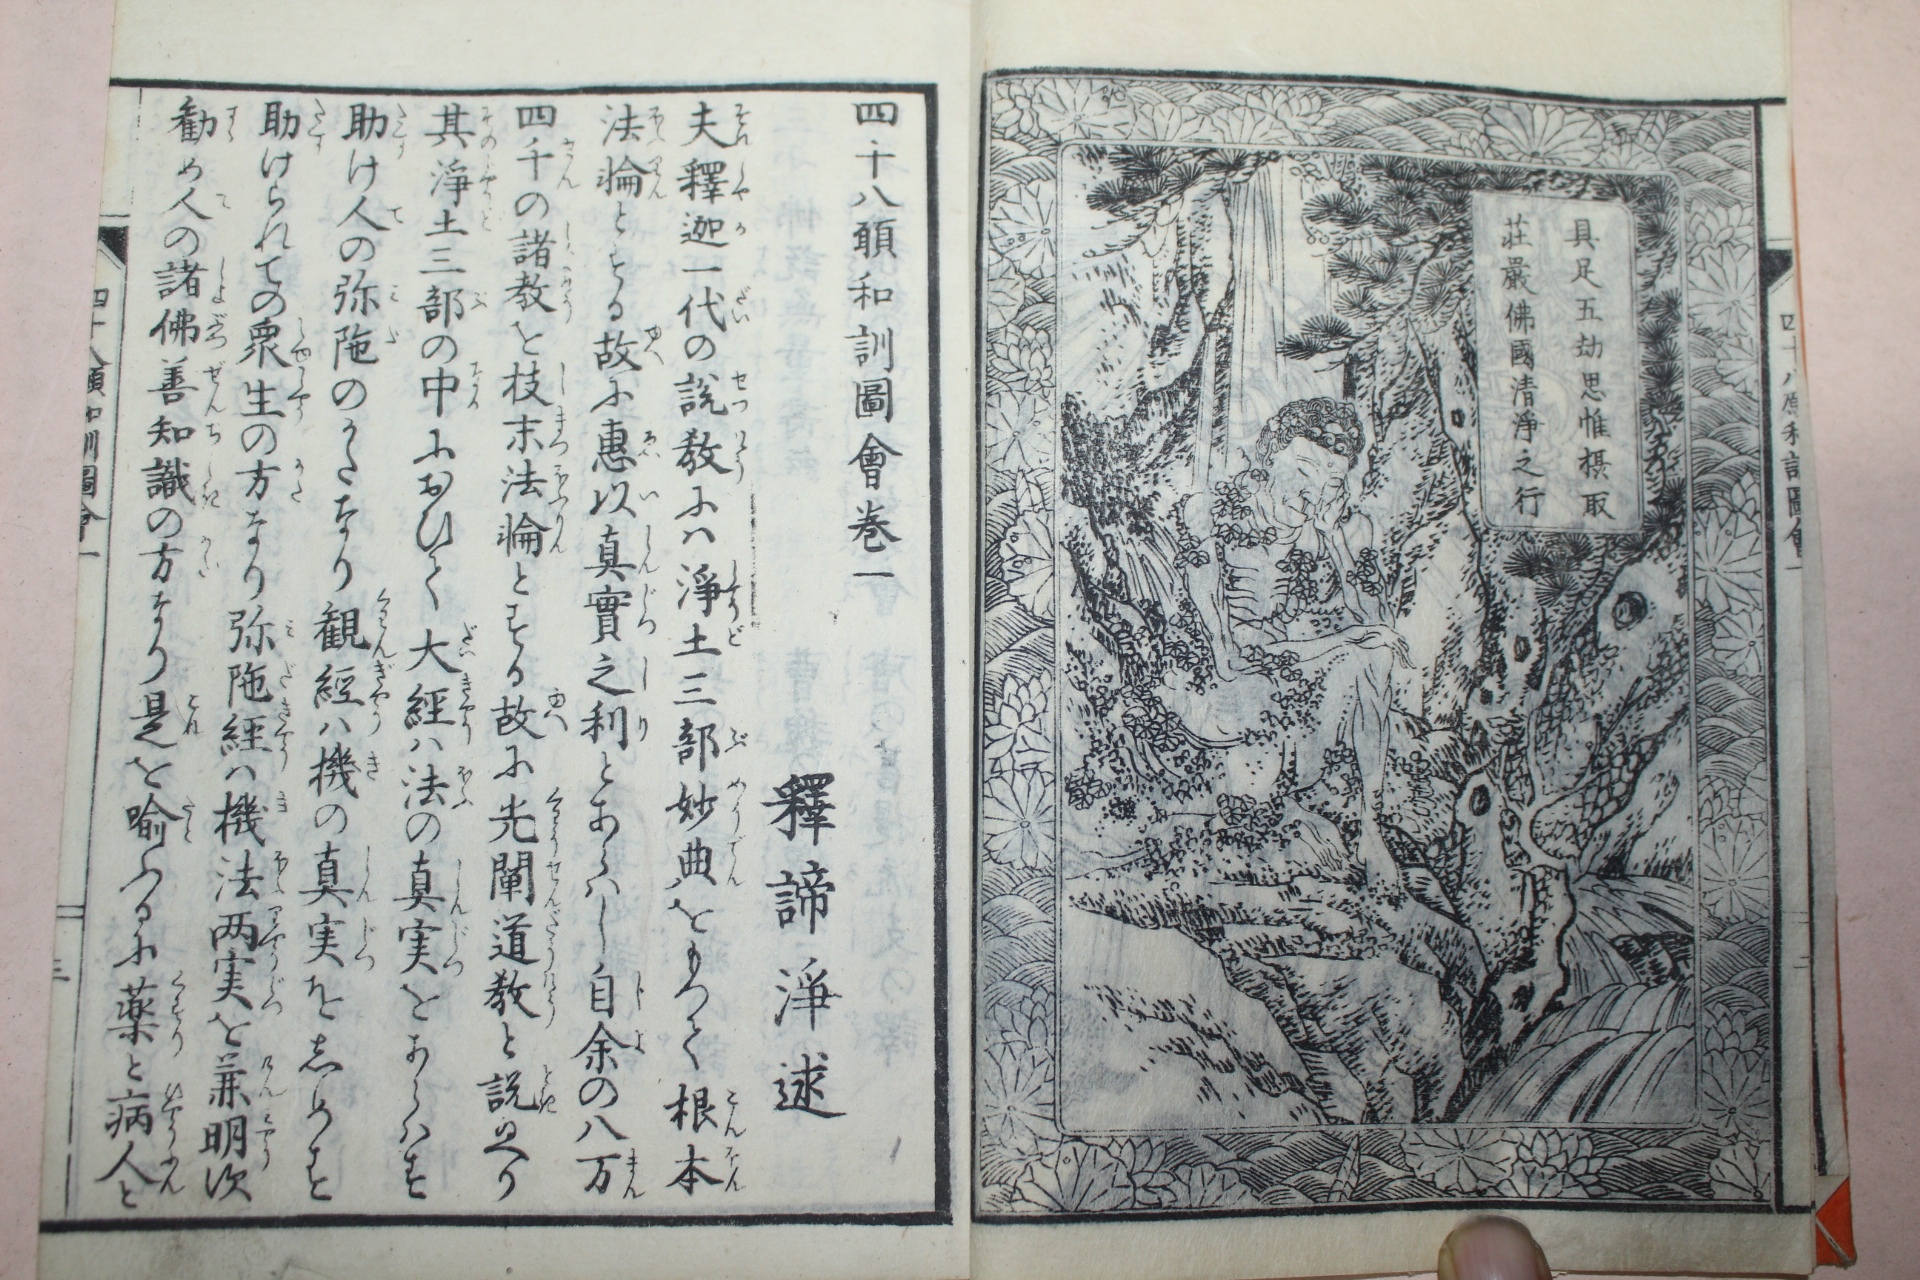 具足五劫思惟摂取
荘嚴佛國清淨之行
四十八願和訓圖會巻一
釋諦淨述
夫釋迦一代の説教にハ淨土三部妙典をもつて根本
法輪とする故に惠以真實之利とあらハし自余の八万
四千の諸教を枝末法輪とする故に先闡道教と説玉へり
其淨土三部の中におひて大経ハ法の真実をあらハす
助け人の弥陁のかたなり観経ハ機の真実をしめす
助けられての衆生の方なり弥陁経ハ機法両実を兼明次
勧め人の諸佛善知識の方なり是を喩ふるに薬と病人と
四十八願和訓圖會一
三